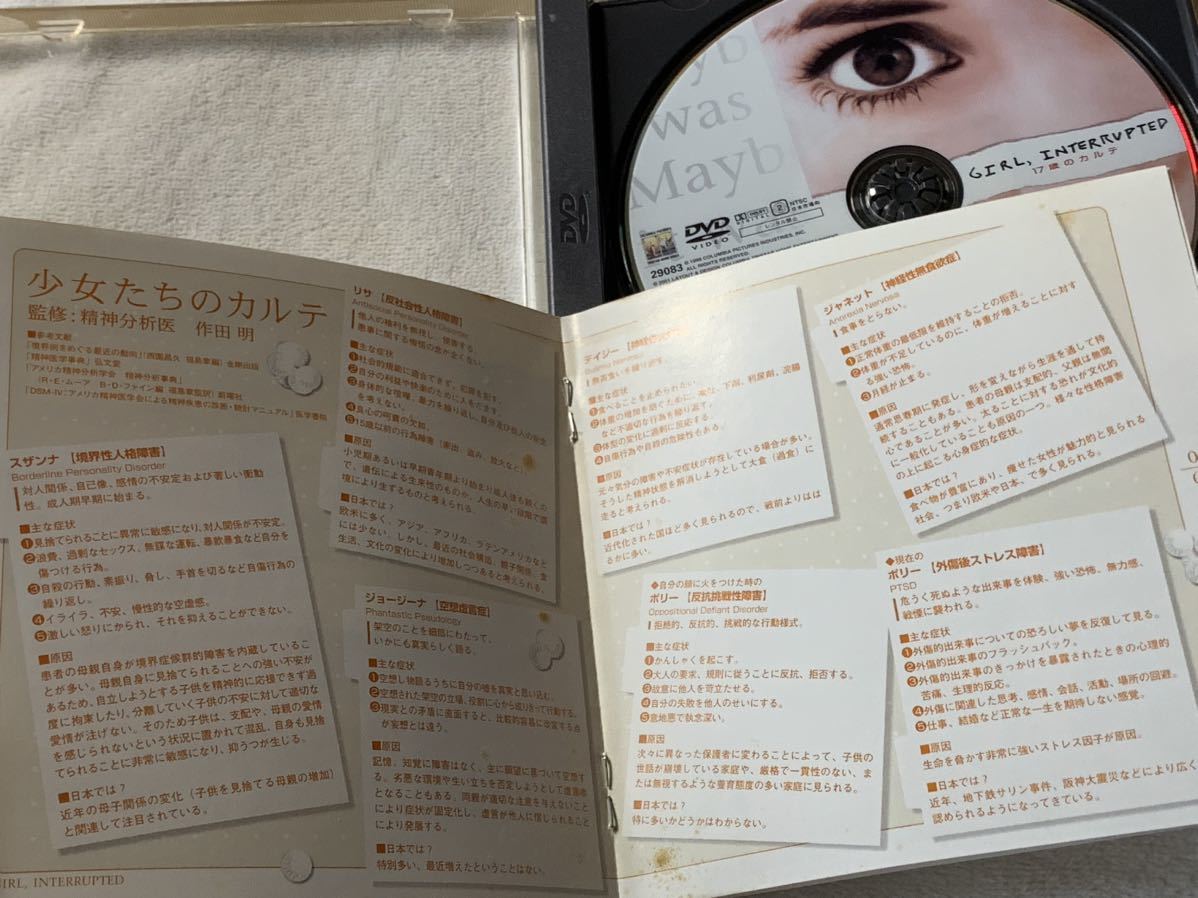 yb
was
Mayb
GIRL, INTERRUPTED
17歳のカルテ
DVD
VIDEO
DOLBY
DIGITAL
2
NTSC
日本市場向
レンタル禁止
29083
© 1999 COLUMBIA PICTURES INDUSTRIES, INC.
ALL RIGHTS RESERVED.
DVD
少女たちのカルテ
監修:精神分析医 作田 明
■参考文献
「境界例をめぐる最近の動向」(西園昌久 福島章編)金剛出版
「精神医学事典」弘文堂
「アメリカ精神分析学会 精神分析事典」
(R・E・ムーア B・D・ファイン編 福島章監訳)新曜社
「DSM-IV:アメリカ精神医学会による精神疾患の診断・統計マニュアル」医学書院
スザンナ【境界性人格障害】
Borderline Personality Disorder
対人関係、自己像、感情の不安定および著しい衝動
性。成人期早期に始まる。
■主な症状
❶見捨てられることに異常に敏感になり、対人関係が不安定。
❷浪費、過剰なセックス、無謀な運転、暴飲暴食など自分を
傷つける行為。
❸自殺の行動、素振り、脅し、手首を切るなど自傷行為の
繰り返し。
❹イライラ、不安、慢性的な空虚感。
❺激しい怒りにかられ、それを抑えることができない。
■原因
患者の母親自身が境界症候群的障害を内蔵しているこ
とが多い。母親自身に見捨てられることへの強い不安が
あるため、自立しようとする子供を精神的に応援できず過
度に拘束したり、分離していく子供の不安に対して適切な
愛情が注げない。そのため子供は、支配や、母親の愛情
を感じられないという状況に置かれて混乱、自身も見捨
てられることに非常に敏感になり、抑うつが生じる。
■日本では?
近年の母子関係の変化(子供を見捨てる母親の増加)
と関連して注目されている。
リサ【反社会性人格障害】
Antisocial Personality Disorder
他人の権利を無視し、侵害する。
悪事に関する後悔の念が全くない。
■主な症状
❶社会的規範に適合できず、犯罪を犯す。
❷自分の利益や快楽のために人をだます。
❸身体的な喧嘩、暴力を繰り返し、自分及び他人の安全
を考えない。
❹良心の呵責の欠如。
❺15歳以前の行為障害(家出、盗み、放火など)。
■原因
小児期あるいは早期青年期より始まり成人後も続くの
で、遺伝による生来性のものか、人生の早い段階で環
境により生ずるものと考えられる。
■日本では?
欧米に多く、アジア、アフリカ、ラテンアメリカなど
には少ない。しかし、最近の社会構造、親子関係、食
生活、文化の変化により増加しつつあると考えられる。
ジョージーナ【空想虚言症】
Phantastic Pseudology
架空のことを細部にわたって、
いかにも真実らしく語る。
■主な症状
❶空想し物語るうちに自分の嘘を真実と思い込む。
❷空想された架空の立場、役割に心から成りきって行動する。
❸現実との矛盾に直面すると、比較的容易に改変する点
が妄想とは違う。
■原因
記憶、知覚に障害はなく、主に願望に基づいて空想す
る。劣悪な環境や生い立ちを否定しようとして虚言癖
となることもある。両親が適切な注意を与えないこと
により症状が固定化し、虚言が他人に信じられること
により発展する。
■日本では?
特別多い、最近増えたということはない。
GIRL, INTERRUPTED
デイジー
Bulimia Nervosa
無茶食いを繰り返す。
■主な症状
❶食べることを止められない。
❷体重の増加を防ぐために、嘔吐、下剤、利尿剤、浣腸
など不適切な行為を繰り返す。
❸体型の変化に過剰に反応する。
❹自傷行為や自殺の危険性もある。
■原因
元々気分の障害や不安症状が存在している場合が多い。
そうした精神状態を解消しようとして大食(過食)に
走ると考えられる。
■日本では?
近代化された国ほど多く見られるので、戦前よりはは
るかに多い。
ジャネット【神経性無食欲症】
Anorexia Nervosa
食事をとらない。
■主な症状
❶正常体重の最低限を維持することの拒否。
❷体重が不足しているのに、体重が増えることに対す
る強い恐怖。
❸月経が止まる。
■原因
通常思春期に発症し、形を変えながら生涯を通して持
続することもある。患者の母親は支配的、父親は無関
心であることが多い。太ることに対する恐れが文化的
に一般化していることも原因の一つ。様々な性格障害
の上に起こる心身症的な症状。
■日本では?
食べ物が豊富にあり、痩せた女性が魅力的と見られる
社会、つまり欧米や日本、で多く見られる。
◆自分の顔に火をつけた時の
ポリー【反抗挑戦性障害】
Oppositional Defiant Disorder
拒絶的、反抗的、挑戦的な行動様式。
■主な症状
❶かんしゃくを起こす。
❷大人の要求、規則に従うことに反抗、拒否する。
❸故意に他人を苛立たせる。
❹自分の失敗を他人のせいにする。
❺意地悪で執念深い。
■原因
次々に異なった保護者に変わることによって、子供の
世話が崩壊している家庭や、厳格で一貫性のない、ま
たは無視するような養育態度の多い家庭に見られる。
■日本では?
特に多いかどうかはわからない。
◆現在の
ポリー【外傷後ストレス障害】
PTSD
危うく死ぬような出来事を体験、強い恐怖、無力感、
戦慄に襲われる。
■主な症状
❶外傷的出来事についての恐ろしい夢を反復して見る。
❷外傷的出来事のフラッシュバック。
❸外傷的出来事のきっかけを暴露されたときの心理的
苦痛、生理的反応。
❹外傷に関連した思考、感情、会話、活動、場所の回避。
❺仕事、結婚など正常な一生を期待しない感覚。
■原因
生命を脅かす非常に強いストレス因子が原因。
■日本では?
近年、地下鉄サリン事件、阪神大震災などにより広く
認められるようになってきている。